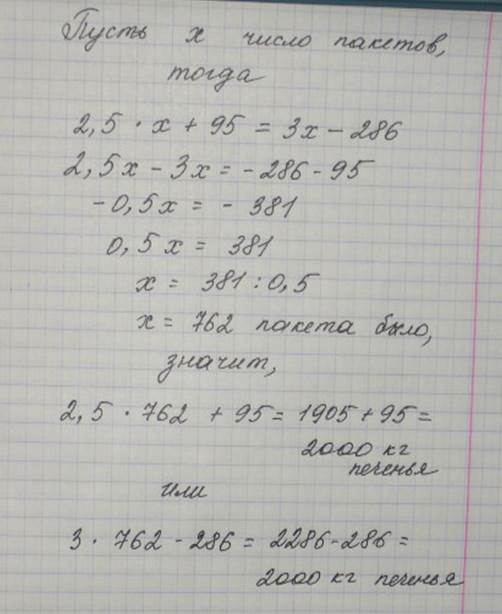 Пусть x число пакетов,
тогда
2,5 · x + 95 = 3x - 286
2,5x - 3x = - 286 - 95
- 0,5x = - 381
0,5x = 381
x = 381 : 0,5
x = 762 пакета было,
значит,
2,5 · 762 + 95 = 1905 + 95 =
2000 кг
печенья
или
3 · 762 - 286 = 2286 - 286 =
2000 кг печенья